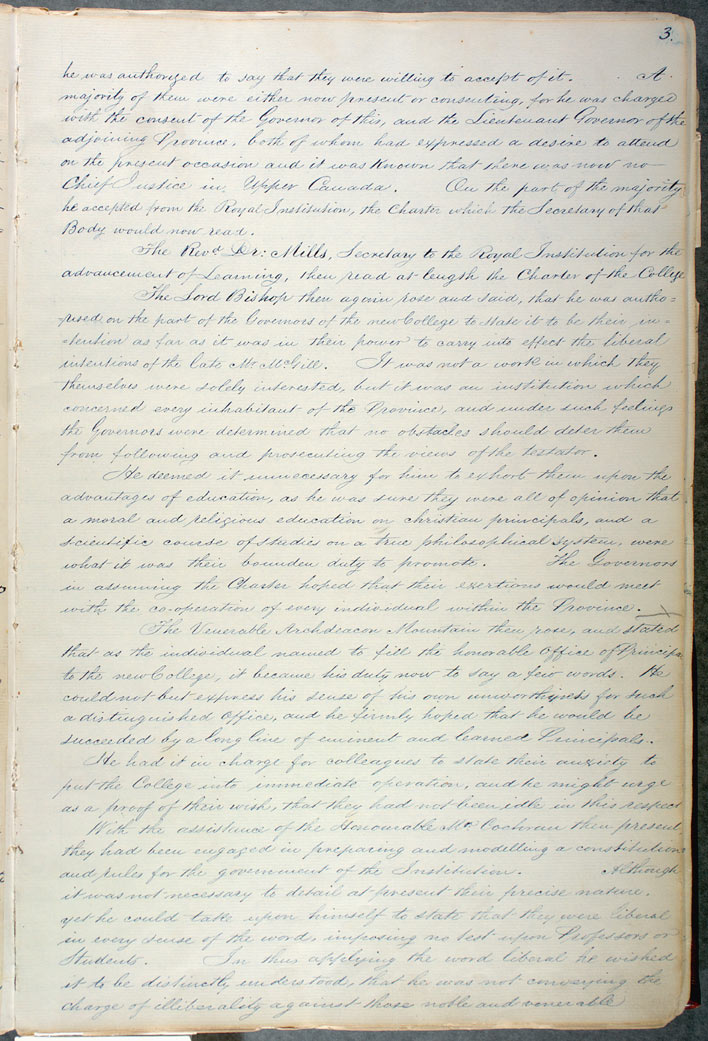 3.
he was authorized to say that they were willing to accept of it. A
majority of them were either now present or consenting, for he was charged
with the consent of the Governor of this, and the Lieutenant Governor of the
adjoining Province, both of whom had expressed a desire to attend
on the present occasion and it was known that there was now no
Chief Justice in Upper Canada. On the part of the majority
he accepted from the Royal Institution, the Charter which the Secretary of that
Body would now read.
The Revd. Dr: Mills, Secretary to the Royal Institution for the
advancement of Learning, then read at length the Charter of the College
The Lord Bishop then again rose and said, that he was autho=
=rised on the part of the Governors of the new College to state it to be their in=
=tention as far as it was in their power to carry into effect the liberal
intentions of the late Mr McGill. It was not a work in which they
themselves were solely interested, but it was an institution which
concerned every inhabitant of the Province, and under such feelings
the Governors were determined that no obstacles should deter them
from following and prosecuting the views of the testator.
He deemed it unnecessary for him to exhort them upon the
advantages of education, as he was sure they were all of opinion that
a moral and religious education on christian principals, and a
scientific course of studies on a true philosophical system, were
what it was their bounden duty to promote. The Governors
in assuming the Charter hoped that their exertions would meet
with the co-operation of every individual within the Province.
The Venerable Archdeacon Mountain then rose, and stated
that as the individual named to fill the honorable Office of Principal
to the new College, it became his duty now to say a few words. He
could not but express his sense of his own unworthyness for such
a distinguished Office, and he firmly hoped that he would be
succeeded by a long line of eminent and learned Principals.
He had it in charge for colleagues to state their anxiety to
put the College into immediate operation, and he might urge
as a proof of their wish, that they had not been idle in this respect
With the assistence of the Honourable Mr. Cochran then present,
they had been engaged in preparing and modelling a constitution
and rules for the government of the Institution. Although
it was not necessary to detail at present their precise nature.
yet he could take upon himself to state that they were liberal
in every sense of the word, imposing no test upon Professors or
Students. In thus applying the word liberal he wished
it to be distinctly understood, that he was not conveying the
charge of illiberality against those noble and venerable